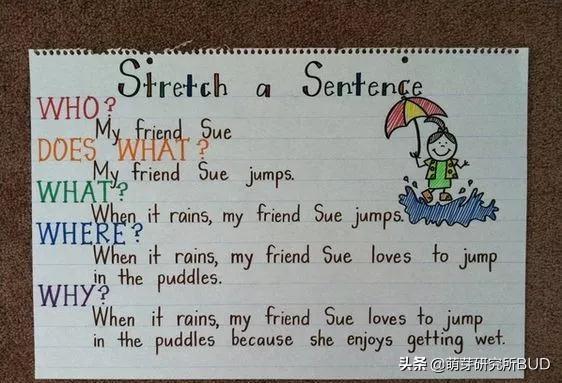 Stretch a Sentence
WHO?
My friend Sue
DOES WHAT?
My friend Sue jumps.
WHAT?
When it rains, my friend Sue jumps.
WHERE?
When it rains, my friend Sue loves to jump
in the puddles.
WHY?
When it rains, my friend Sue loves to jump
in the puddles because she enjoys getting wet.
头条 @萌芽研究所BUD